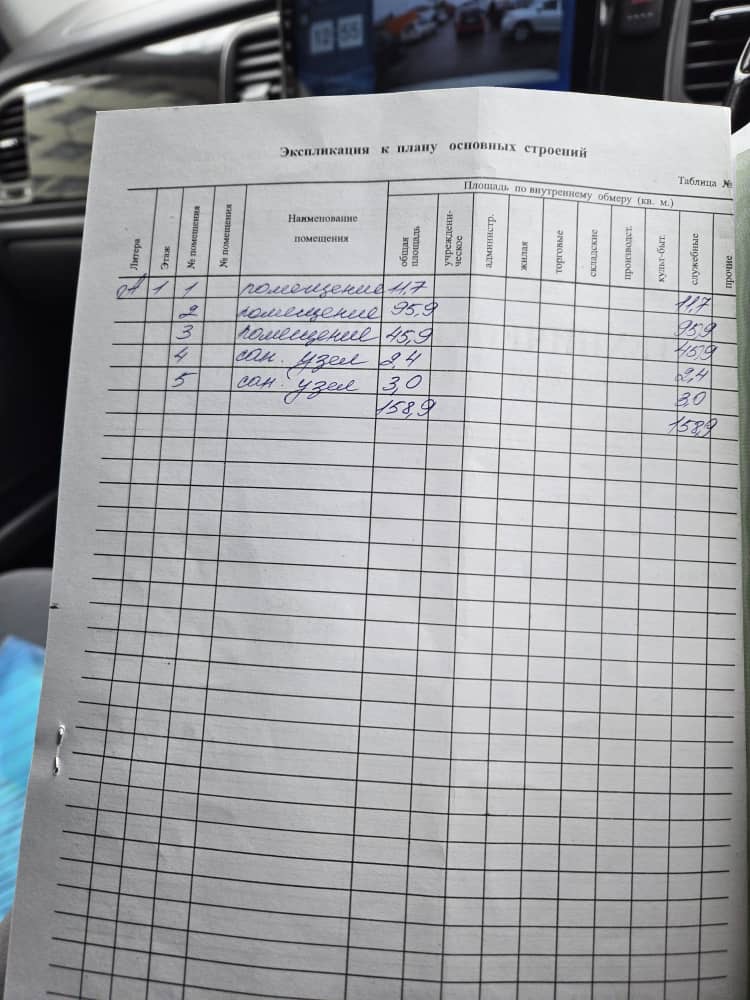 12 55
Экспликация к плану основных строений
Таблица №
Литера Этаж № помещения № помещения Наименование помещения Площадь по внутреннему обмеру (кв. м.)
общая площадь учреждени-ческое администр. жилая торговые складские производст. культ-быт. служебные прочие
А 1 1 помещение 11,7 11,7
2 помещение 95,9 95,9
3 помещение 45,9 45,9
4 сан. узел 2,4 2,4
5 сан. узел 3,0 3,0
158,9 158,9